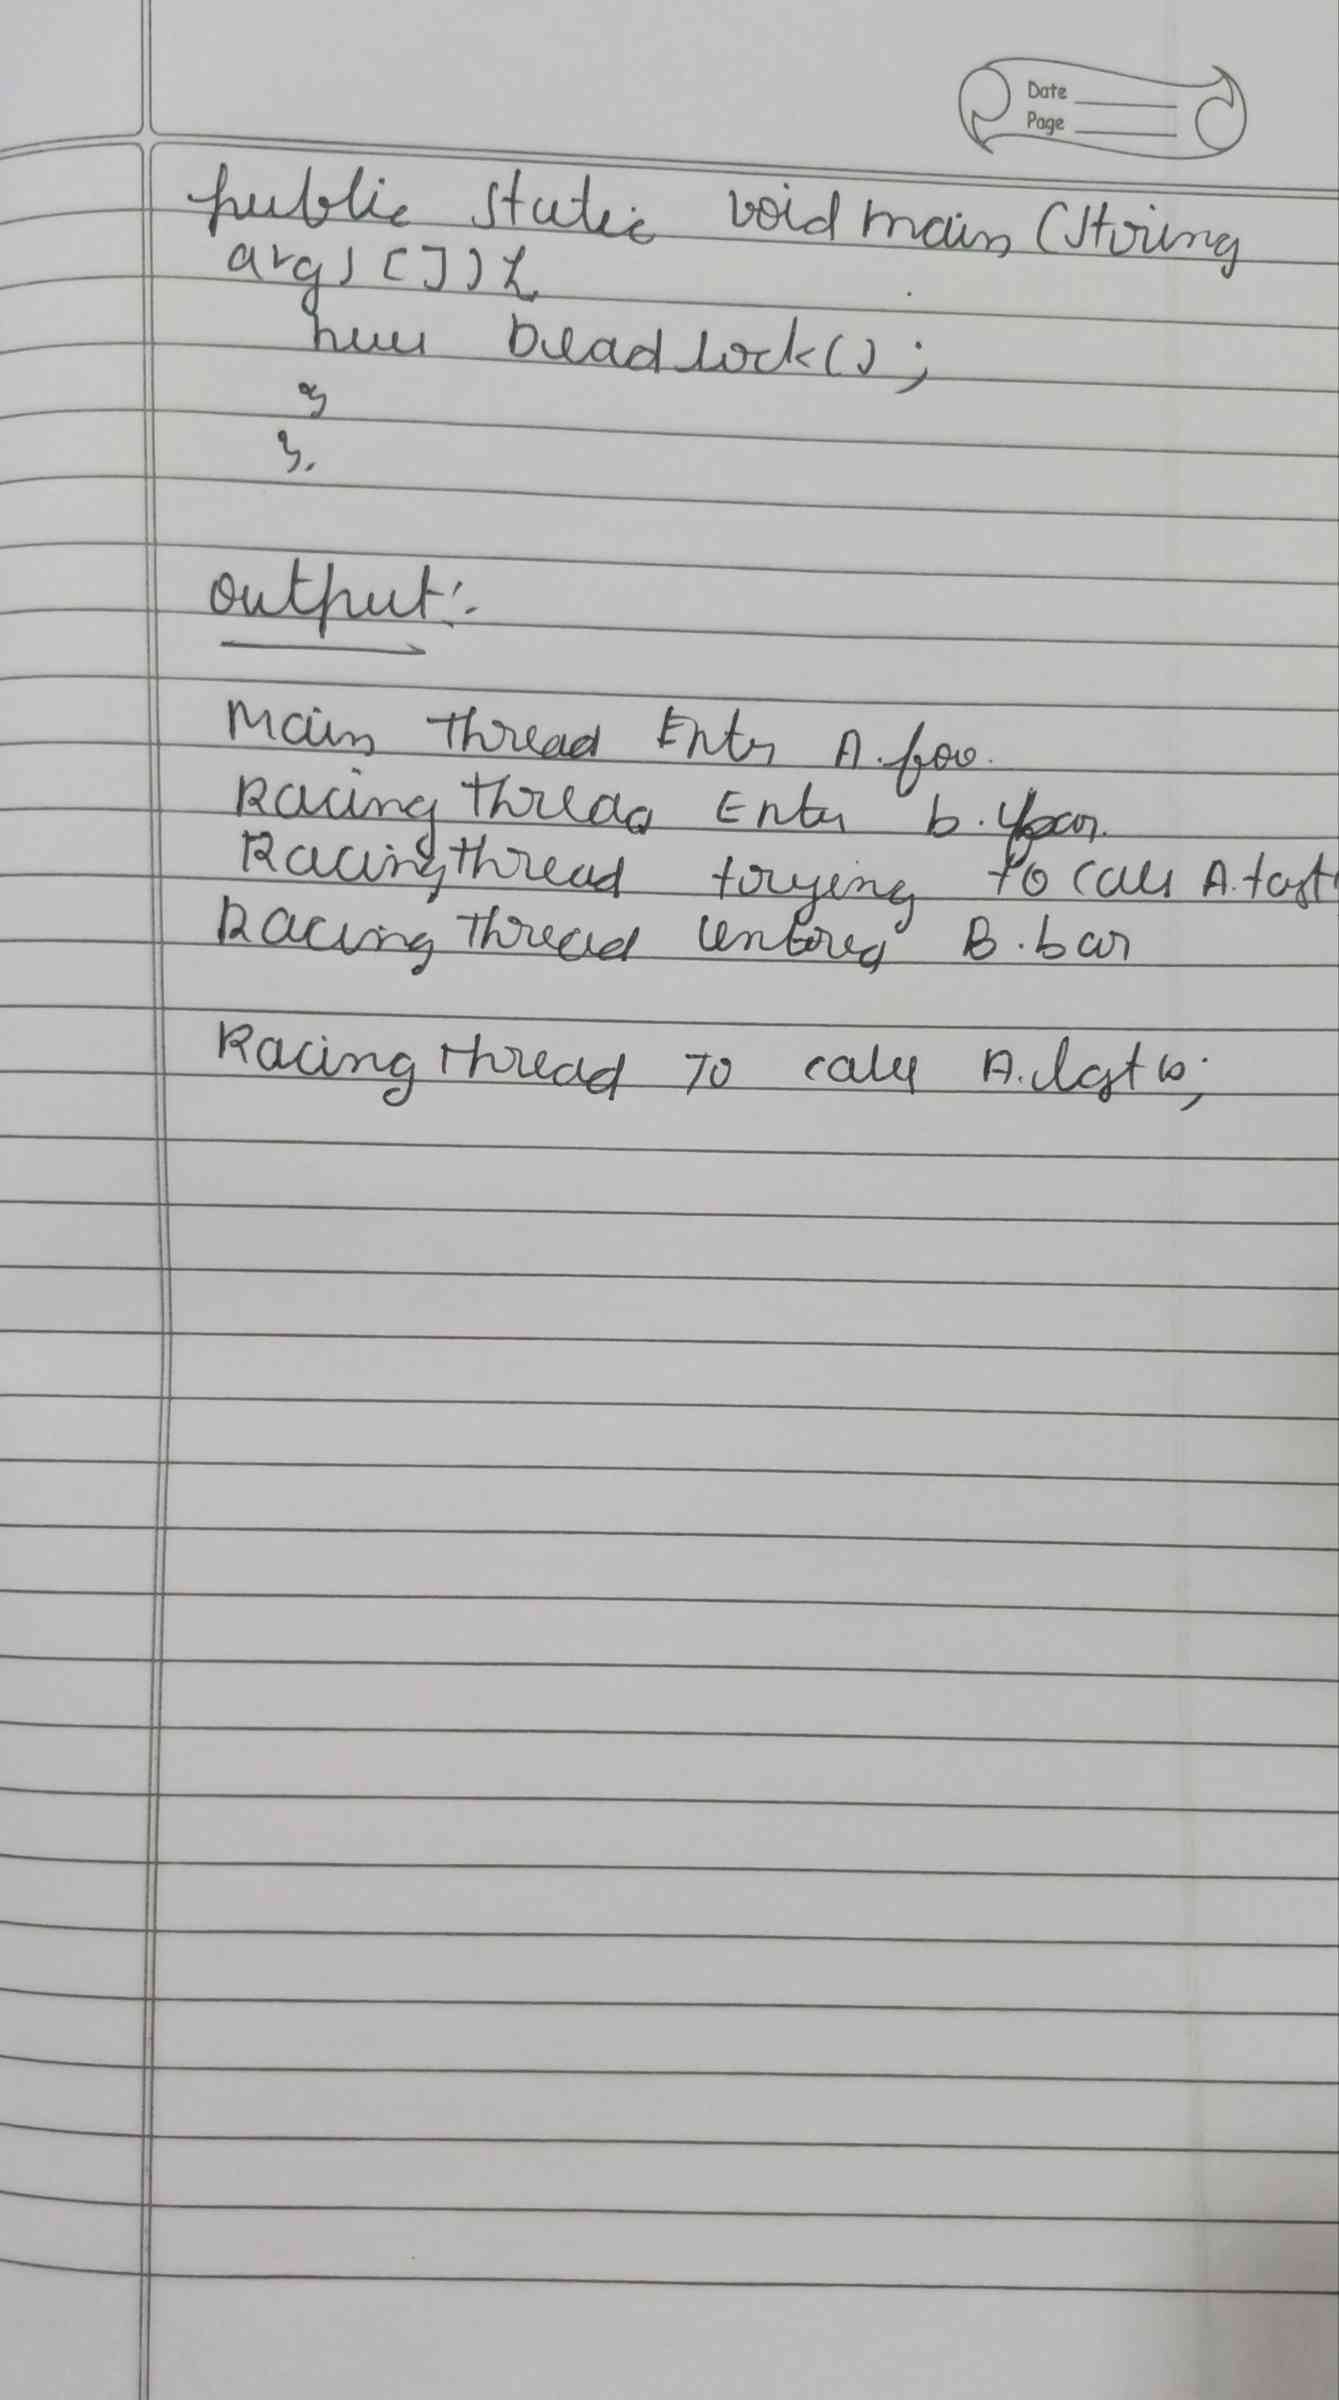 Date
Page
public static void main (String
args[]){
new Deadlock();
}
}.
output:-
Main thread Enter A.foo.
Racing thread Enter b.bar.
Racing thread trying to call A.last
Racing thread entered B.bar
Racing thread To call A.last();